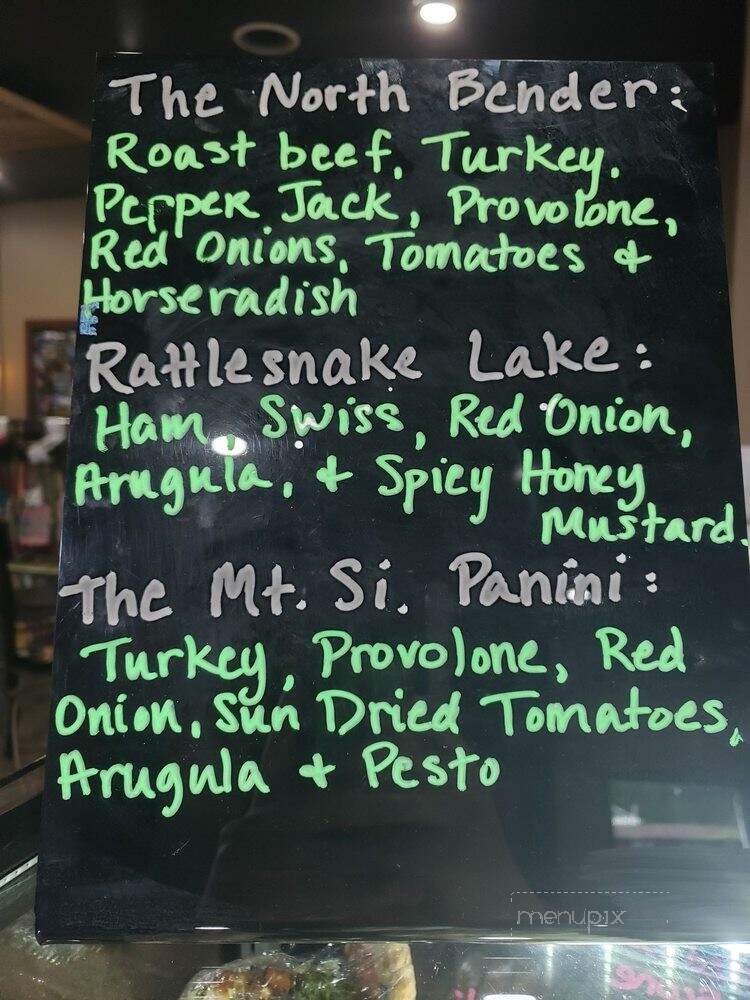 The North Bender:
Roast beef, Turkey,
Pepper Jack, Provolone,
Red Onions, Tomatoes &
Horseradish
Rattlesnake Lake:
Ham, Swiss, Red Onion,
Arugula, & Spicy Honey
Mustard.
The Mt. Si. Panini:
Turkey, Provolone, Red
Onion, Sun Dried Tomatoes,
Arugula & Pesto
menupix